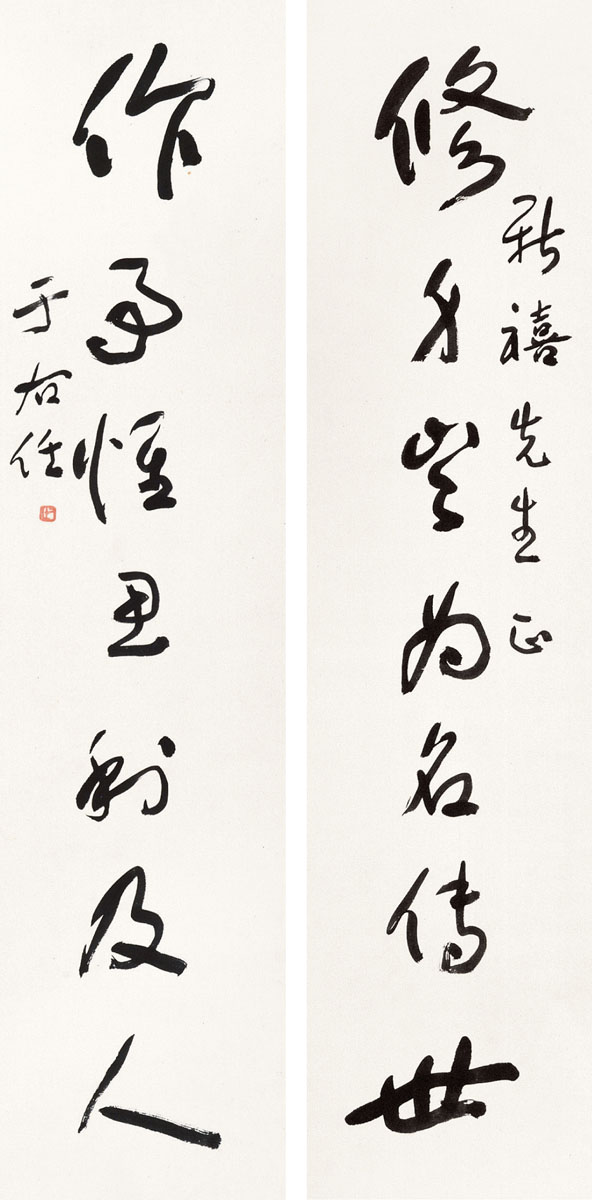 修身豈為名傳世
新禧先生正
作事惟思利及人
于右任